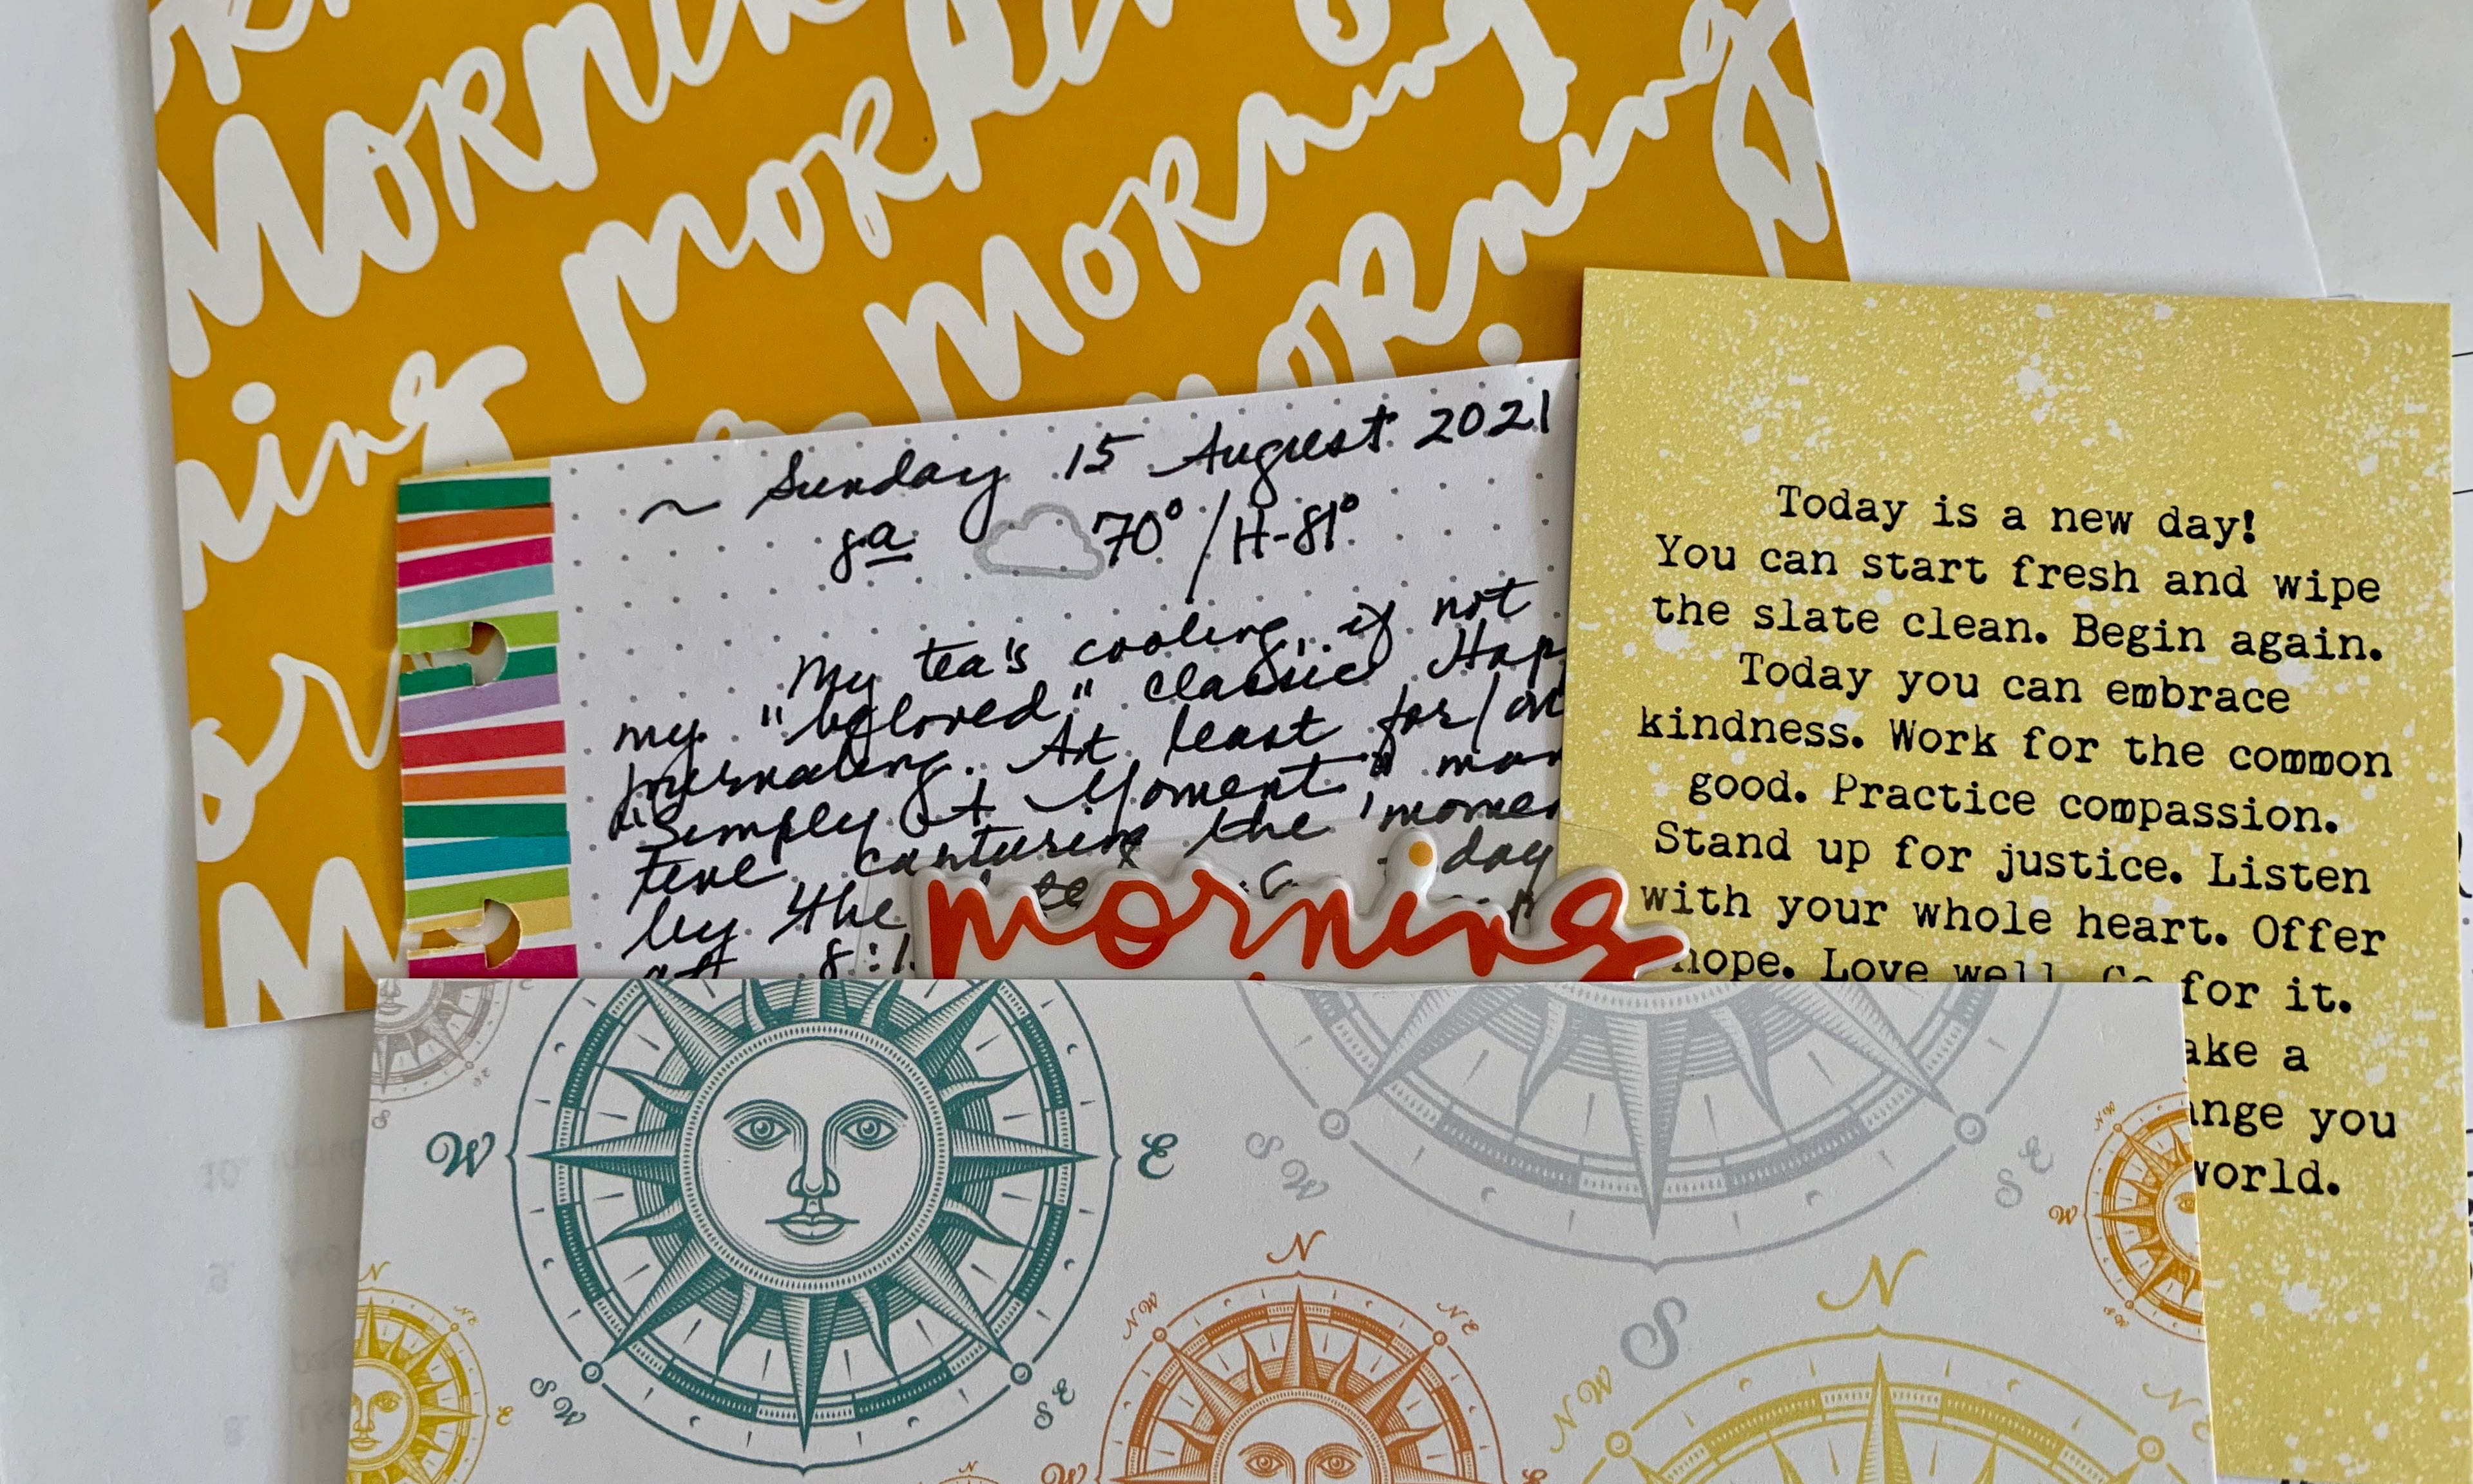 MORNING
MORNING
MORNING
morning
ning
or
M
~ Sunday 15 August 2021
8a 70° / H-81°
My tea's cooling... if not
my "beloved" classic Hap
journaling. At least for/on
"Simply A Moment"
capturing the 'momen
by the day
8:1
morning
Today is a new day!
You can start fresh and wipe
the slate clean. Begin again.
Today you can embrace
kindness. Work for the common
good. Practice compassion.
Stand up for justice. Listen
with your whole heart. Offer
hope. Love well. Go for it.
ake a
nge you
world.
W E
SW SE
S
SW SE
N
NW NE
W
N
NW NE
N
NE
E
NW
W
SW
S